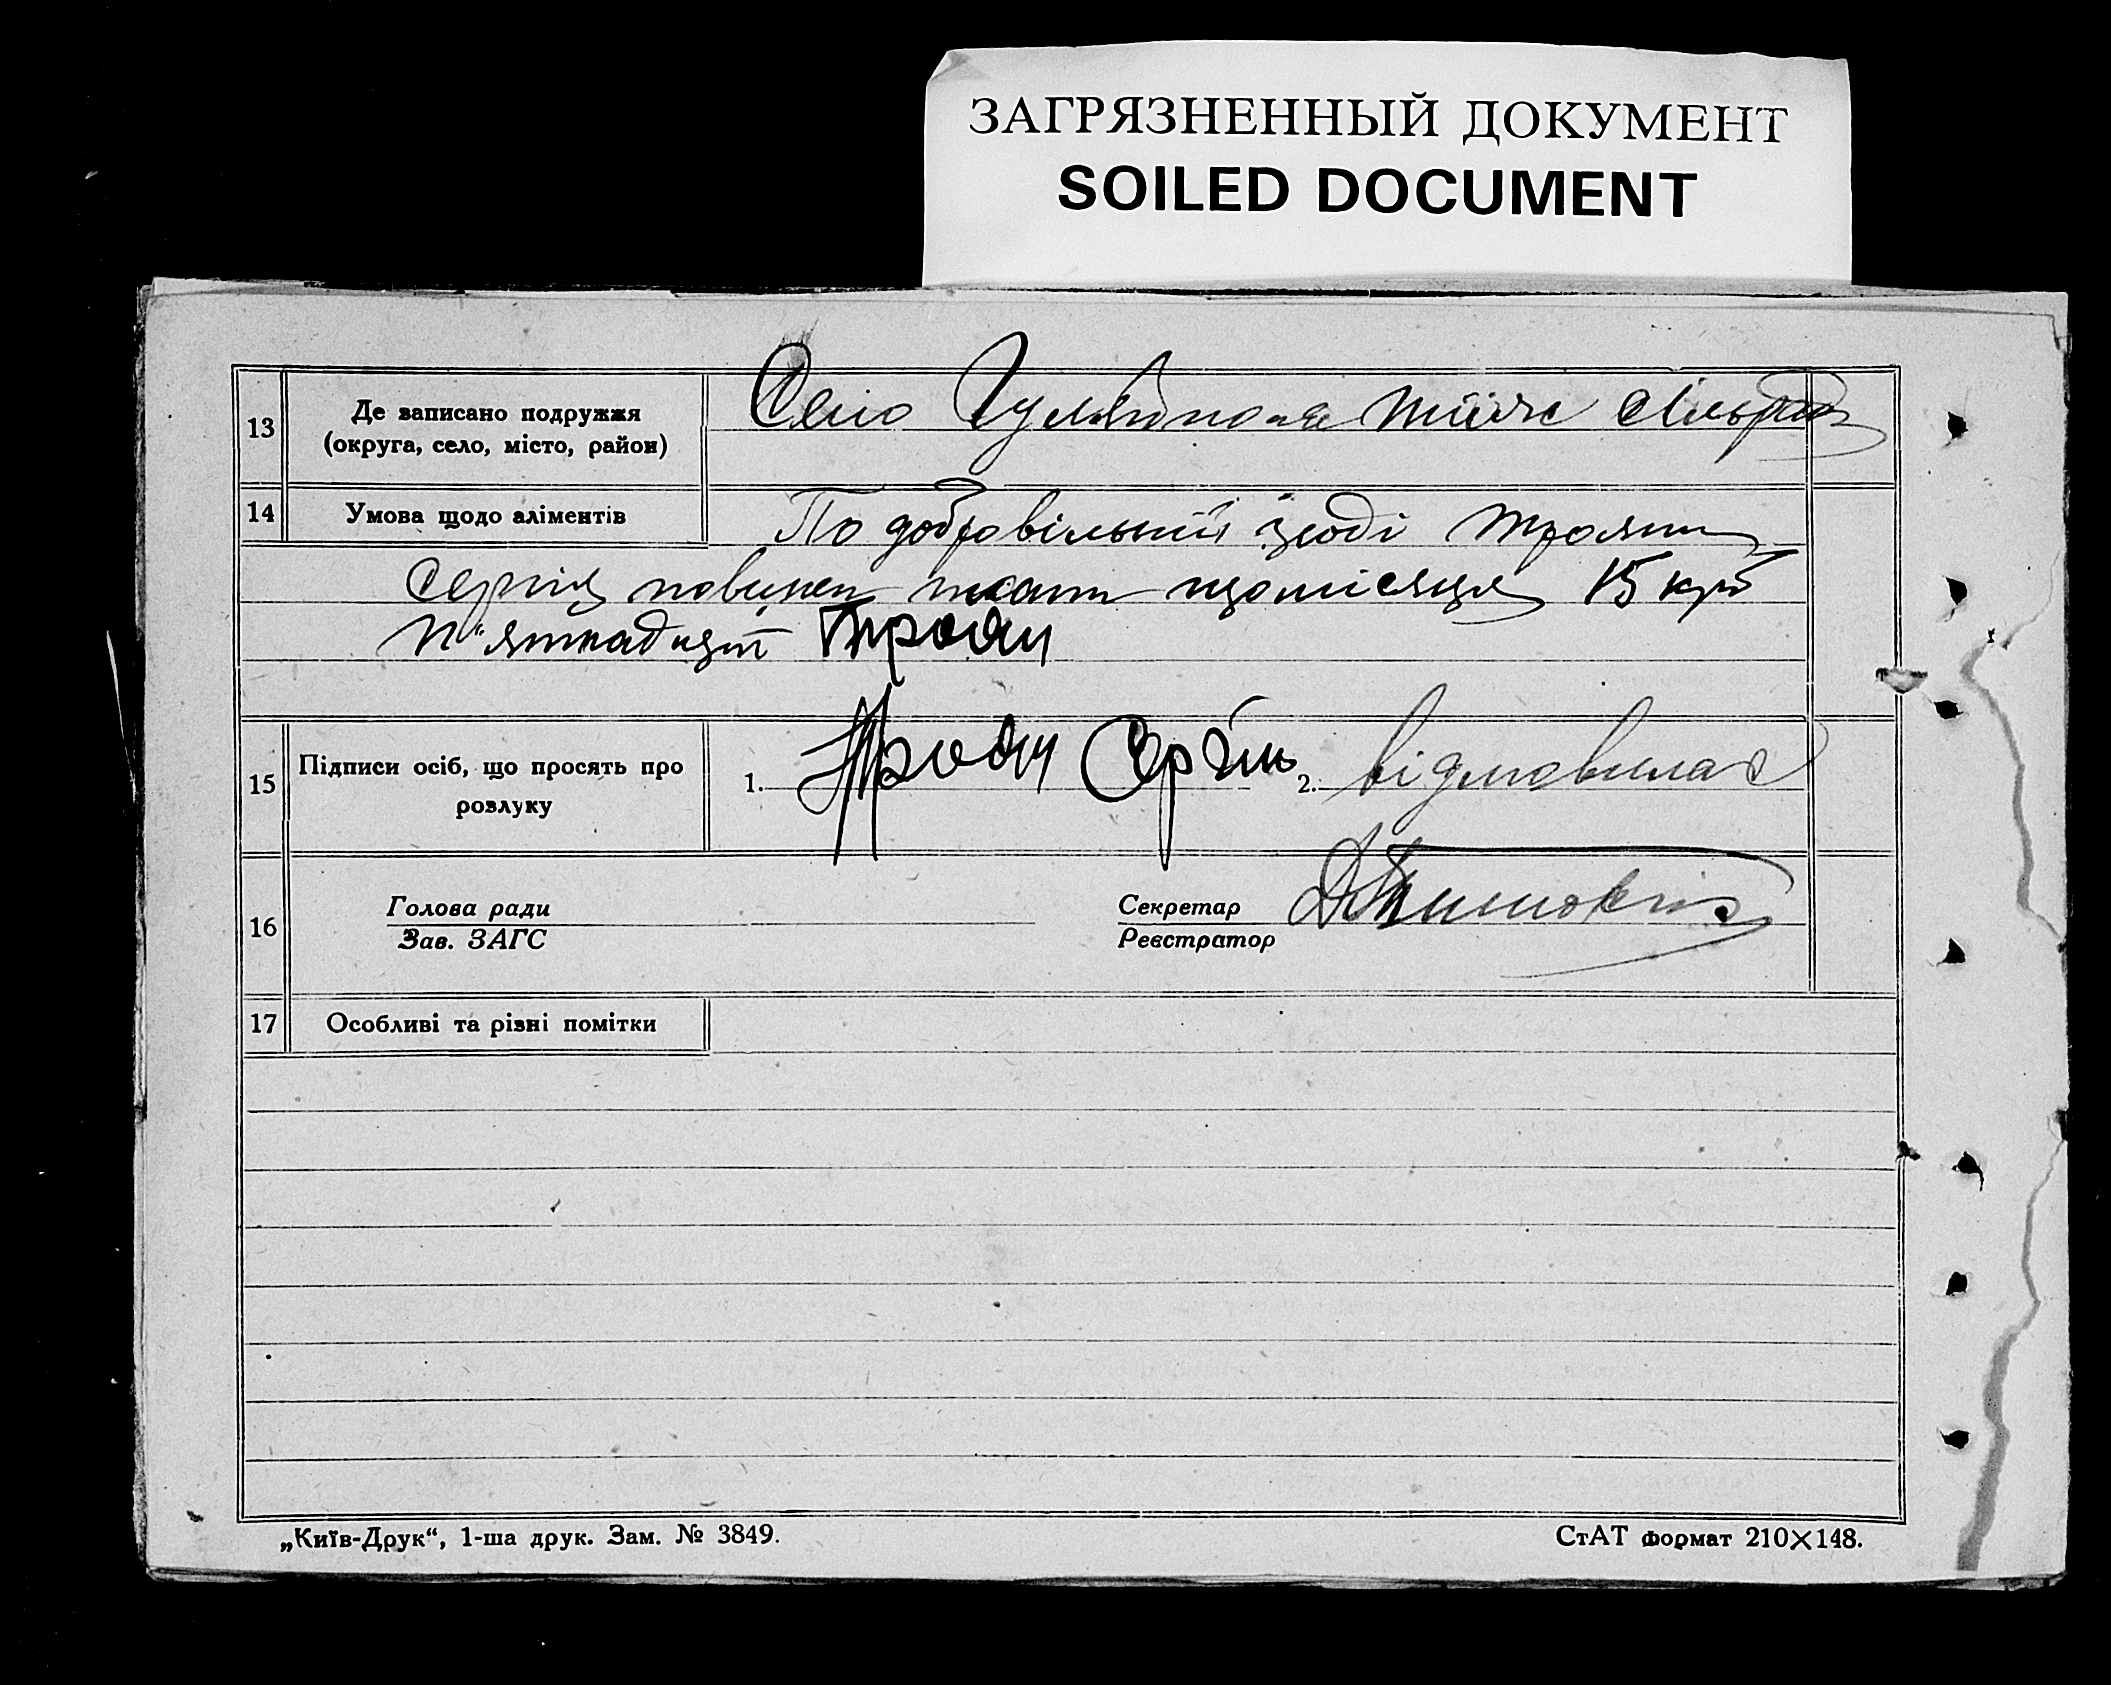 ЗАГРЯЗНЕННЫЙ ДОКУМЕНТ
SOILED DOCUMENT
13
Де записано подружжя
(округа, село, місто, район)
Село Гуляйполе сільрад
14
Умова щодо аліментів
По добровільній згоді Троян
Сергій повинен плат щомісяця 15 крб
п"ятнадцят Троян
15
Підписи осіб, що просять про
розлуку
1. Троян Сергій 2. відмовилас
16
Голова ради
Зав. ЗАГС
Секретар
Реєстратор
17
Особливі та різні помітки
„Київ-Друк“, 1-ша друк. Зам. № 3849.
СтАТ формат 210×148.